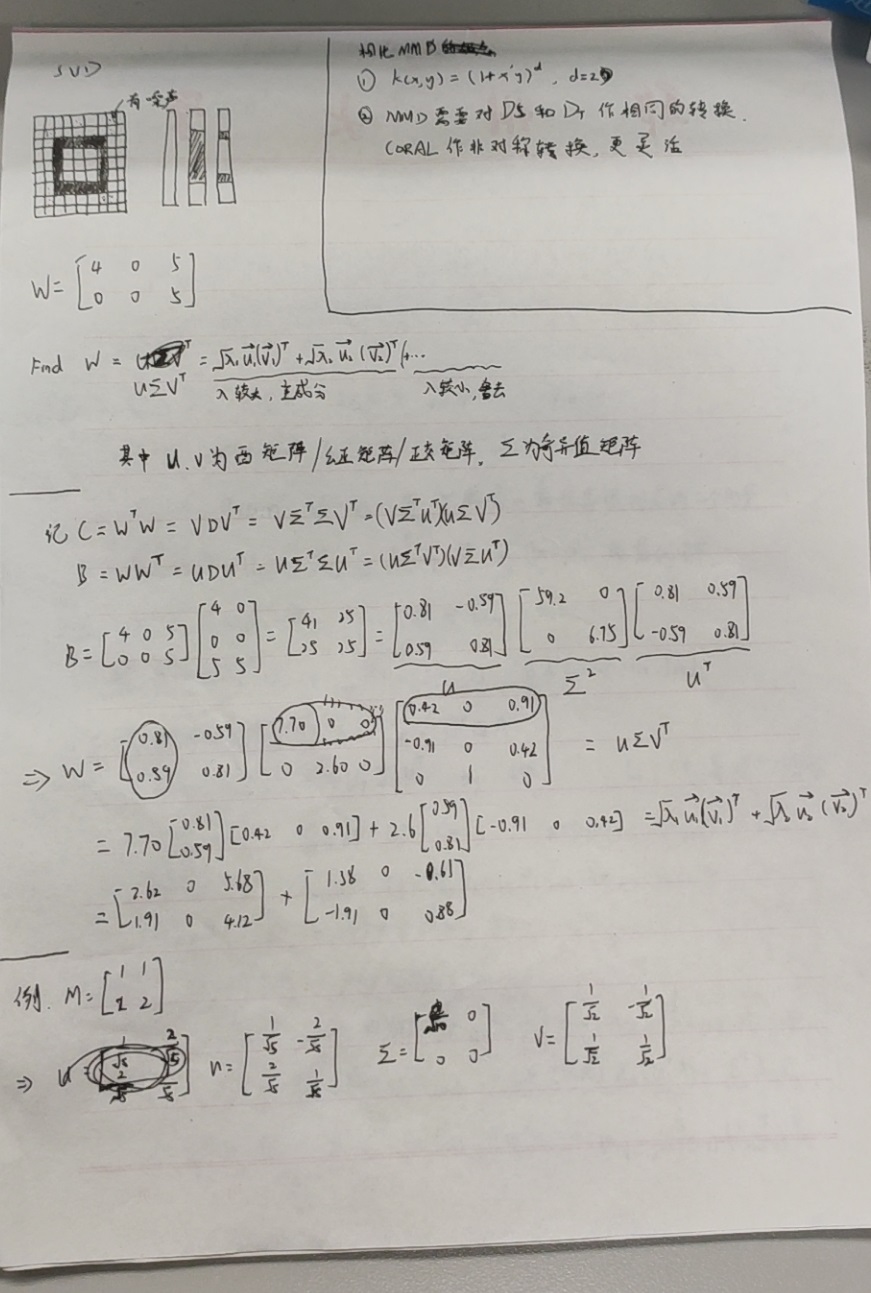 SVD
有噪声
相比MMD
① k(x,y) = (1+x'y)^d , d=2
② MMD需要对 Ds 和 DT 作相同的转换.
CORAL 作非对称转换, 更灵活
W = [4 0 5; 0 0 5]
Find W = UΣV^T = √λ₁ u₁→(v₁→)^T + √λ₂ u₂→(v₂→)^T + ...
λ较大, 主成分 λ较小, 舍去
其中 U.V为酉矩阵/幺正矩阵/正交矩阵. Σ为奇异值矩阵
记 C = W^T W = VDV^T = VΣ^TΣV^T = (VΣ^TU^T)(UΣV^T)
B = WW^T = UDU^T = UΣ^TΣU^T = (UΣ^TV^T)(VΣU^T)
B = [4 0 5; 0 0 5] [4 0; 0 0; 5 5] = [41 25; 25 25] = [0.81 -0.59; 0.59 0.81] [59.2 0; 0 6.75] [0.81 0.59; -0.59 0.81]
U Σ² U^T
⇒ W = [0.81 -0.59; 0.59 0.81] [7.70 0 0; 0 2.60 0] [0.42 0 0.91; -0.91 0 0.42; 0 1 0] = UΣV^T
= 7.70 [0.81; 0.59] [0.42 0 0.91] + 2.6 [0.59; 0.81] [-0.91 0 0.42] = √λ₁ u₁→(v₁→)^T + √λ₂ u₂→(v₂→)^T
= [2.62 0 5.68; 1.91 0 4.12] + [1.38 0 -0.61; -1.91 0 0.88]
例. M = [1 1; 2 2]
⇒ U = [1/√5 -2/√5; 2/√5 1/√5] Σ = [√10 0; 0 0] V = [1/√2 -1/√2; 1/√2 1/√2]